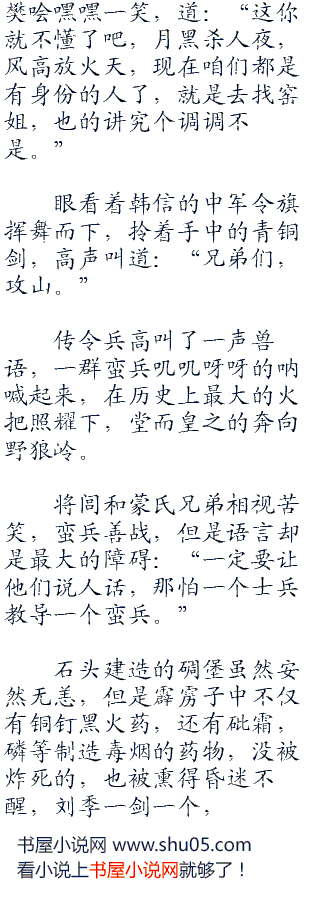 樊哙嘿嘿一笑，道：“这你
就不懂了吧，月黑杀人夜，
风高放火天，现在咱们都是
有身份的人了，就是去找窑
姐，也的讲究个调调不
是。”
眼看着韩信的中军令旗
挥舞而下，拎着手中的青铜
剑，高声叫道：“兄弟们，
攻山。”
传令兵高叫了一声兽
语，一群蛮兵叽叽呀呀的呐
喊起来，在历史上最大的火
把照耀下，堂而皇之的奔向
野狼岭。
将闾和蒙氏兄弟相视苦
笑，蛮兵善战，但是语言却
是最大的障碍：“一定要让
他们说人话，那怕一个士兵
教导一个蛮兵。”
石头建造的碉堡虽然安
然无恙，但是霹雳子中不仅
有铜钉黑火药，还有砒霜，
磷等制造毒烟的药物，没被
炸死的，也被熏得昏迷不
醒，刘季一剑一个，
书屋小说网 www.shu05.com
看小说上书屋小说网就够了！